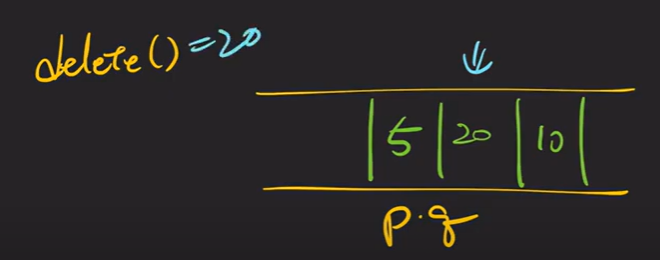 delete() = 20
5 20 10
p.q